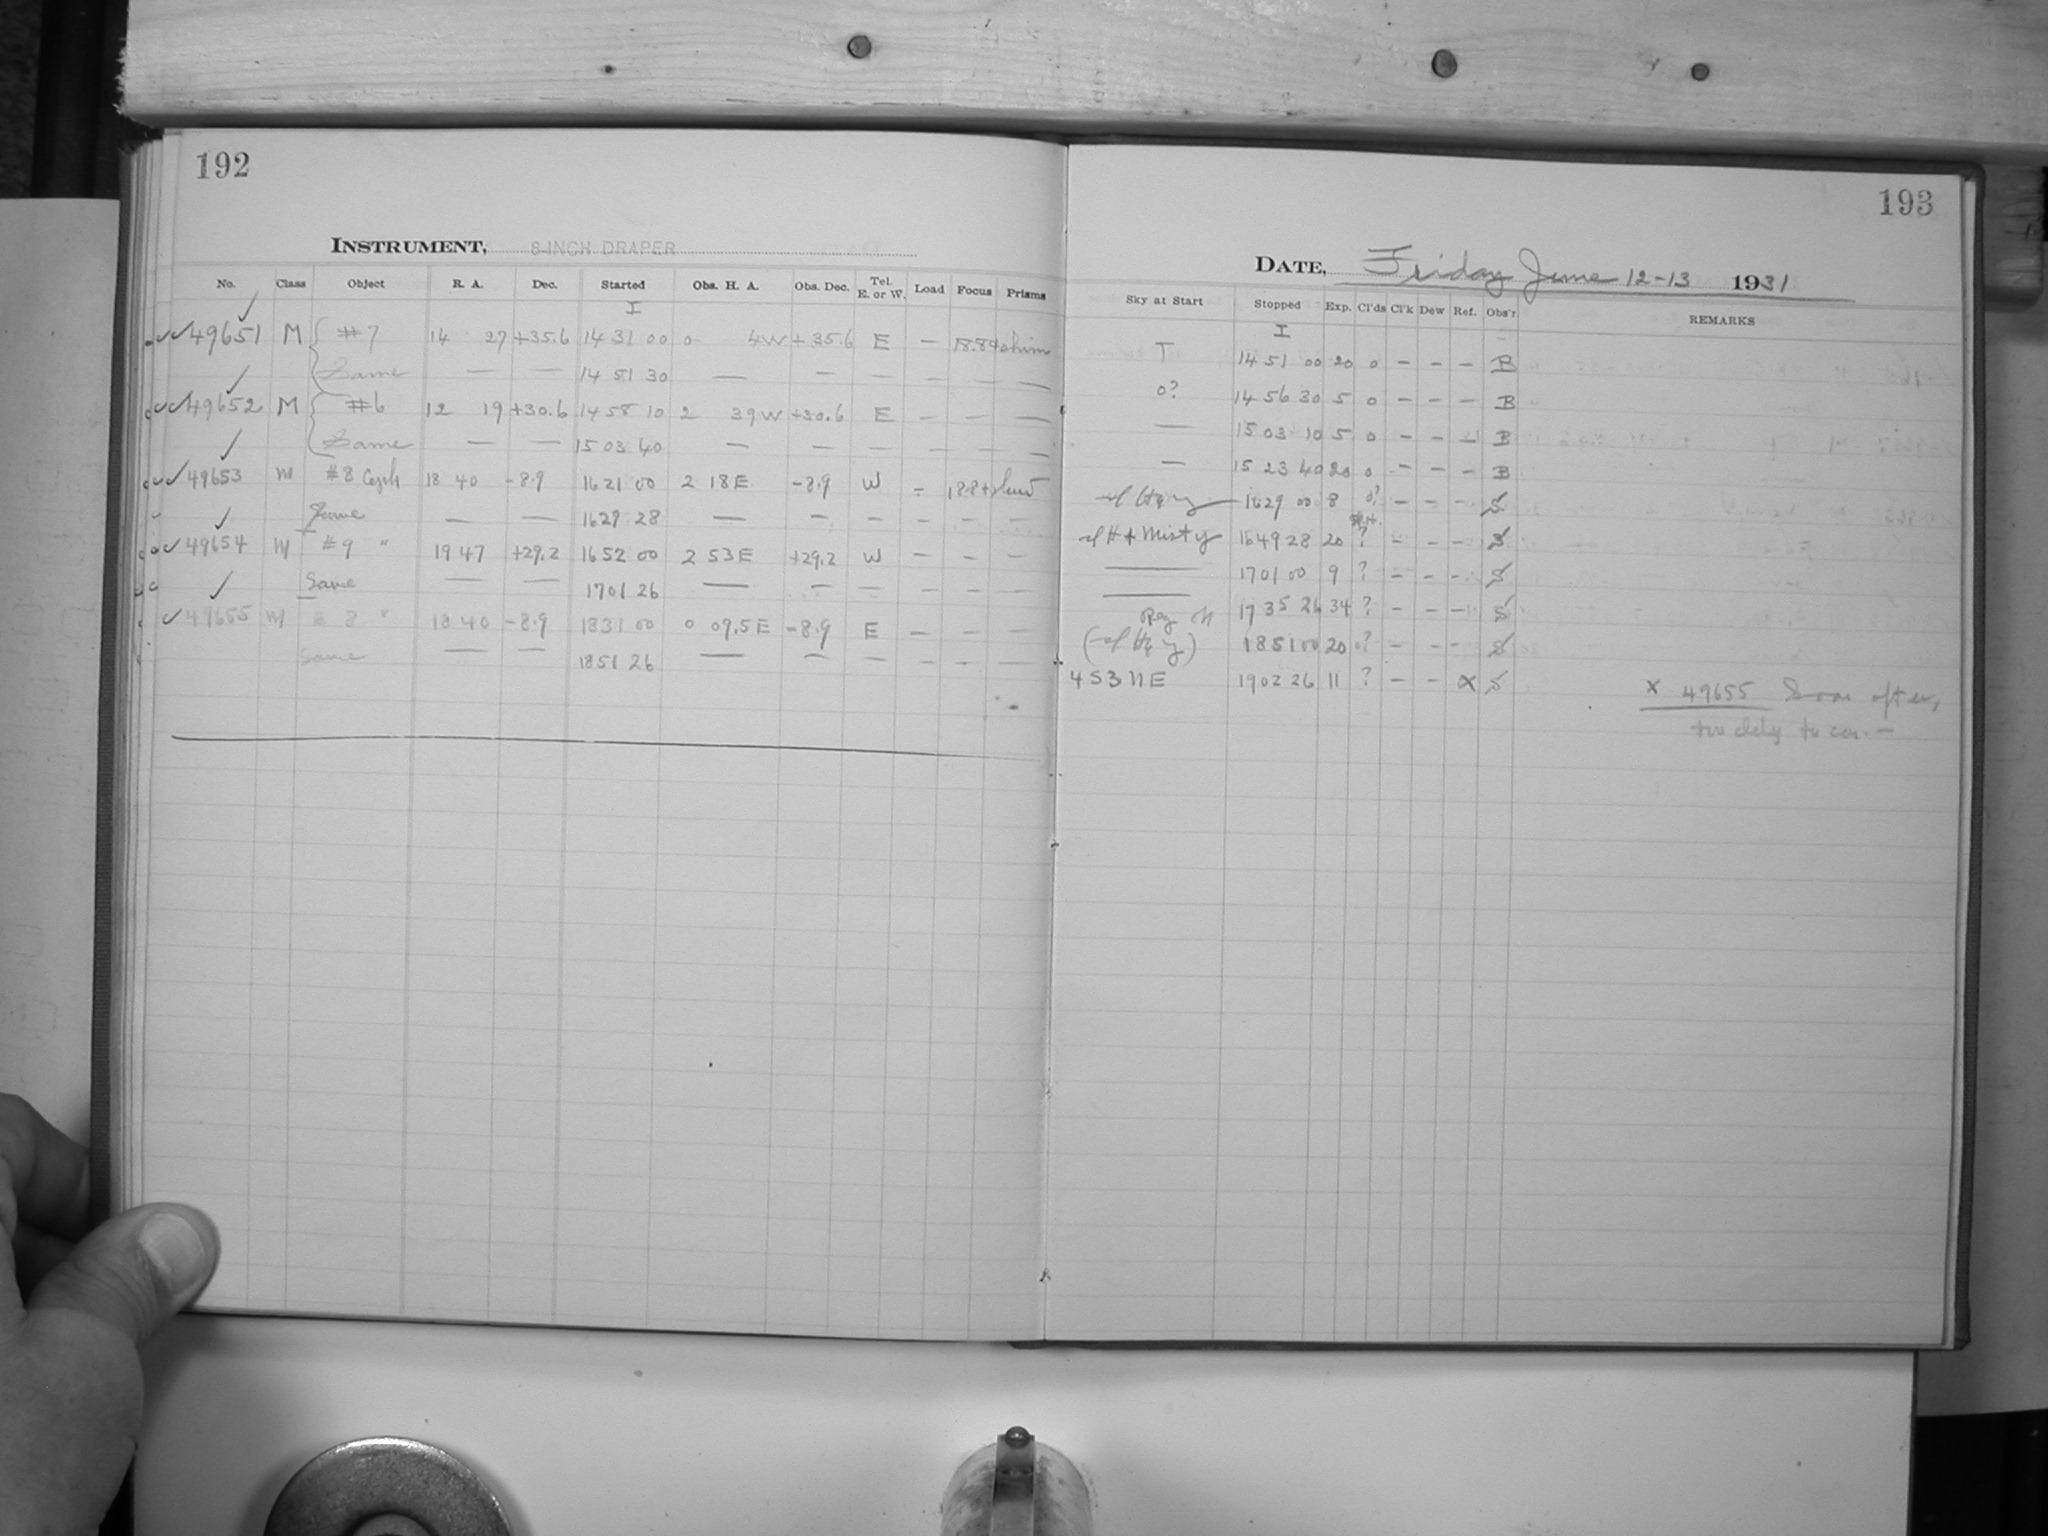 192
INSTRUMENT, 8-INCH DRAPER
No. Class Object R. A. Dec. Started Obs. H. A. Obs. Dec. Tel. E. or W. Load Focus Prisms
I
✓✓49651 M #7 14 27 +35.6 14 31 00 0 4W +35.6 E — 18.84 shim
✓ Same — — 14 51 30 — — — — — —
✓✓49652 M #6 12 19 +30.6 14 58 10 2 39W +30.6 E — — —
✓ Same — — 15 03 40 — — — — — —
✓✓49653 M #8 Ceph 18 40 -8.9 16 21 00 2 18E -8.9 W —
✓ Same — — 16 29 28 — — — — — —
✓49654 M #9 " 19 47 +29.2 16 52 00 2 53E +29.2 W — — —
✓ Same — — 17 01 26 — — — — — —
✓49655 M # 8 " 18 40 -8.9 18 31 00 0 09.5E -8.9 E — — —
Same — — 18 51 26 — — — — — —
193
DATE, Friday June 12-13 1931
Sky at Start Stopped Exp. Cl'ds Cl'k Dew Ref. Obs'r REMARKS
I
T 14 51 00 20 0 — — — B
0? 14 56 30 5 0 — — — B
— 15 03 10 5 0 — — — B
— 15 23 40 20 0 — — — B
16 29 00 8 0? — — — S
Misty 16 49 28 20 ? — — — S
— 17 01 00 9 ? — — — S
— 17 35 26 34 ? — — — S
18 51 00 20 0? — — — S
4 S 3 N E 19 02 26 11 ? — — x S
x 49655 Soon after,
to